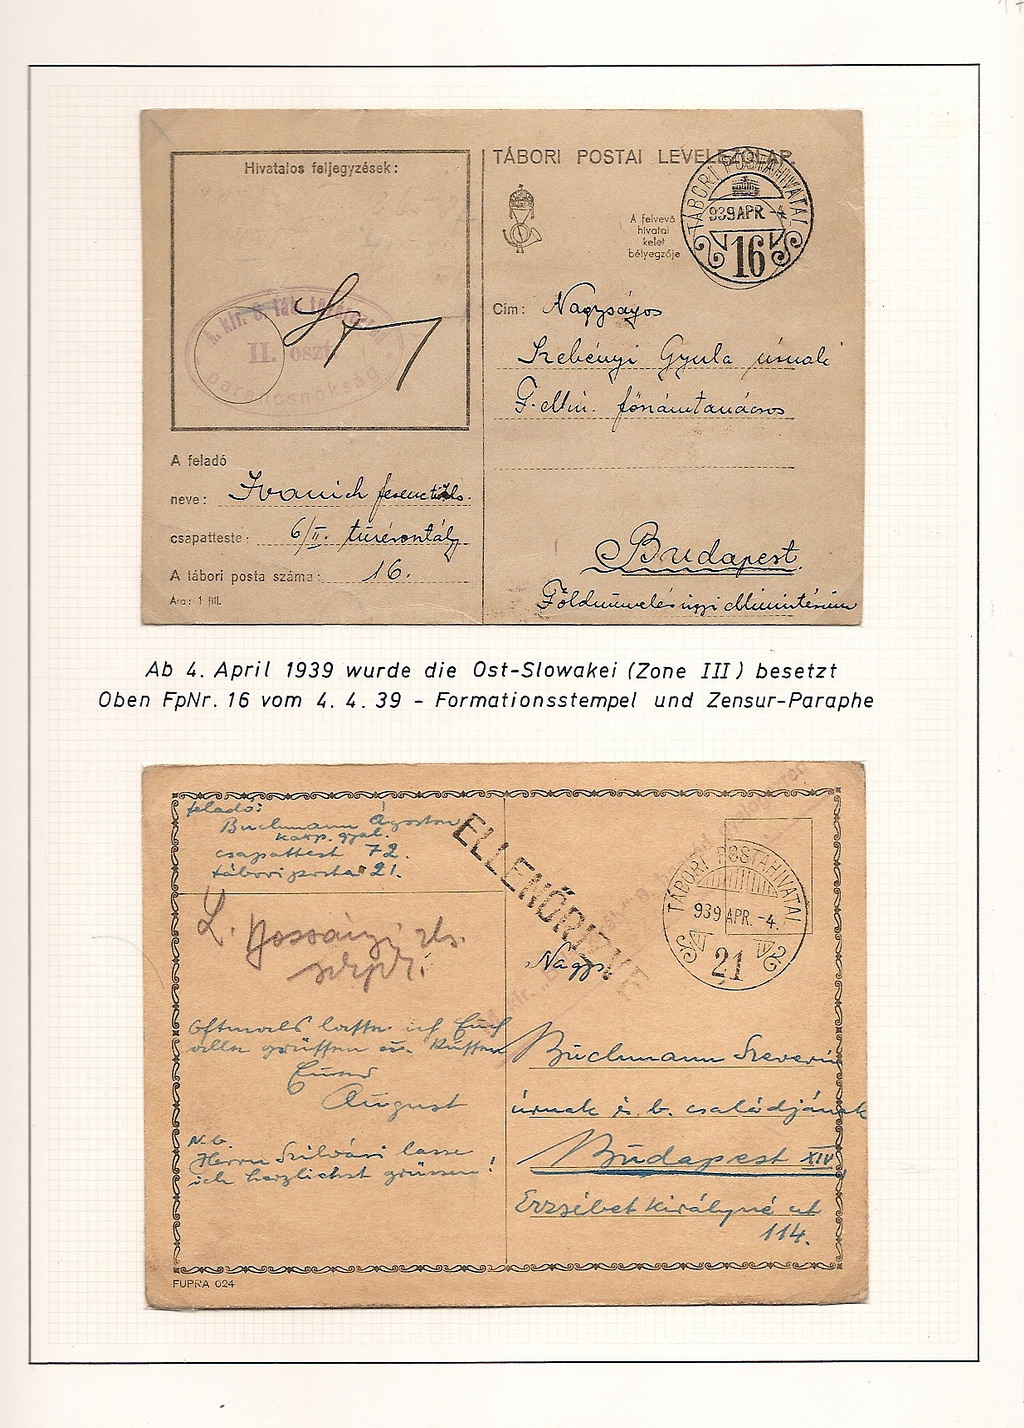 Hivatalos feljegyzések:
M. kir. 6. táb. tüzérezred
II. oszt.
parancsnokság
A feladó
neve: Ivanich ferenc
csapatteste: 6/II. tüzérosztály
A tábori posta száma: 16.
Ára: 1 fill.
TÁBORI POSTAI LEVELEZŐLAP.
A felvevő
hivatal
kelet
bélyegzője
TÁBORI POSTAHIVATAL
939 APR. -4.
16
Cím: Nagyságos
Szebényi Gyula úrnak
F. Min.
Budapest.
Földmivelésügyi Minisztérium
Ab 4. April 1939 wurde die Ost-Slowakei (Zone III) besetzt
Oben FpNr. 16 vom 4. 4. 39 - Formationsstempel und Zensur-Paraphe
feladó:
Buchmann Ágoston
karp. gyal.
csapattest 72.
tábori posta 21.
ELLENŐRIZVE
TÁBORI POSTAHIVATAL
939 APR. -4.
21
Nagys.
Buchmann Szeverin
úrnak és b. családjának
Budapest XIV
Erzsébet királyné út
114.
Oftmals lasse ich Euch
alle grüssen u. Küssen
Euer
August
N.b.
Herrn Szilvási lasse
ich herzlichst grüssen!
FUPRA 024